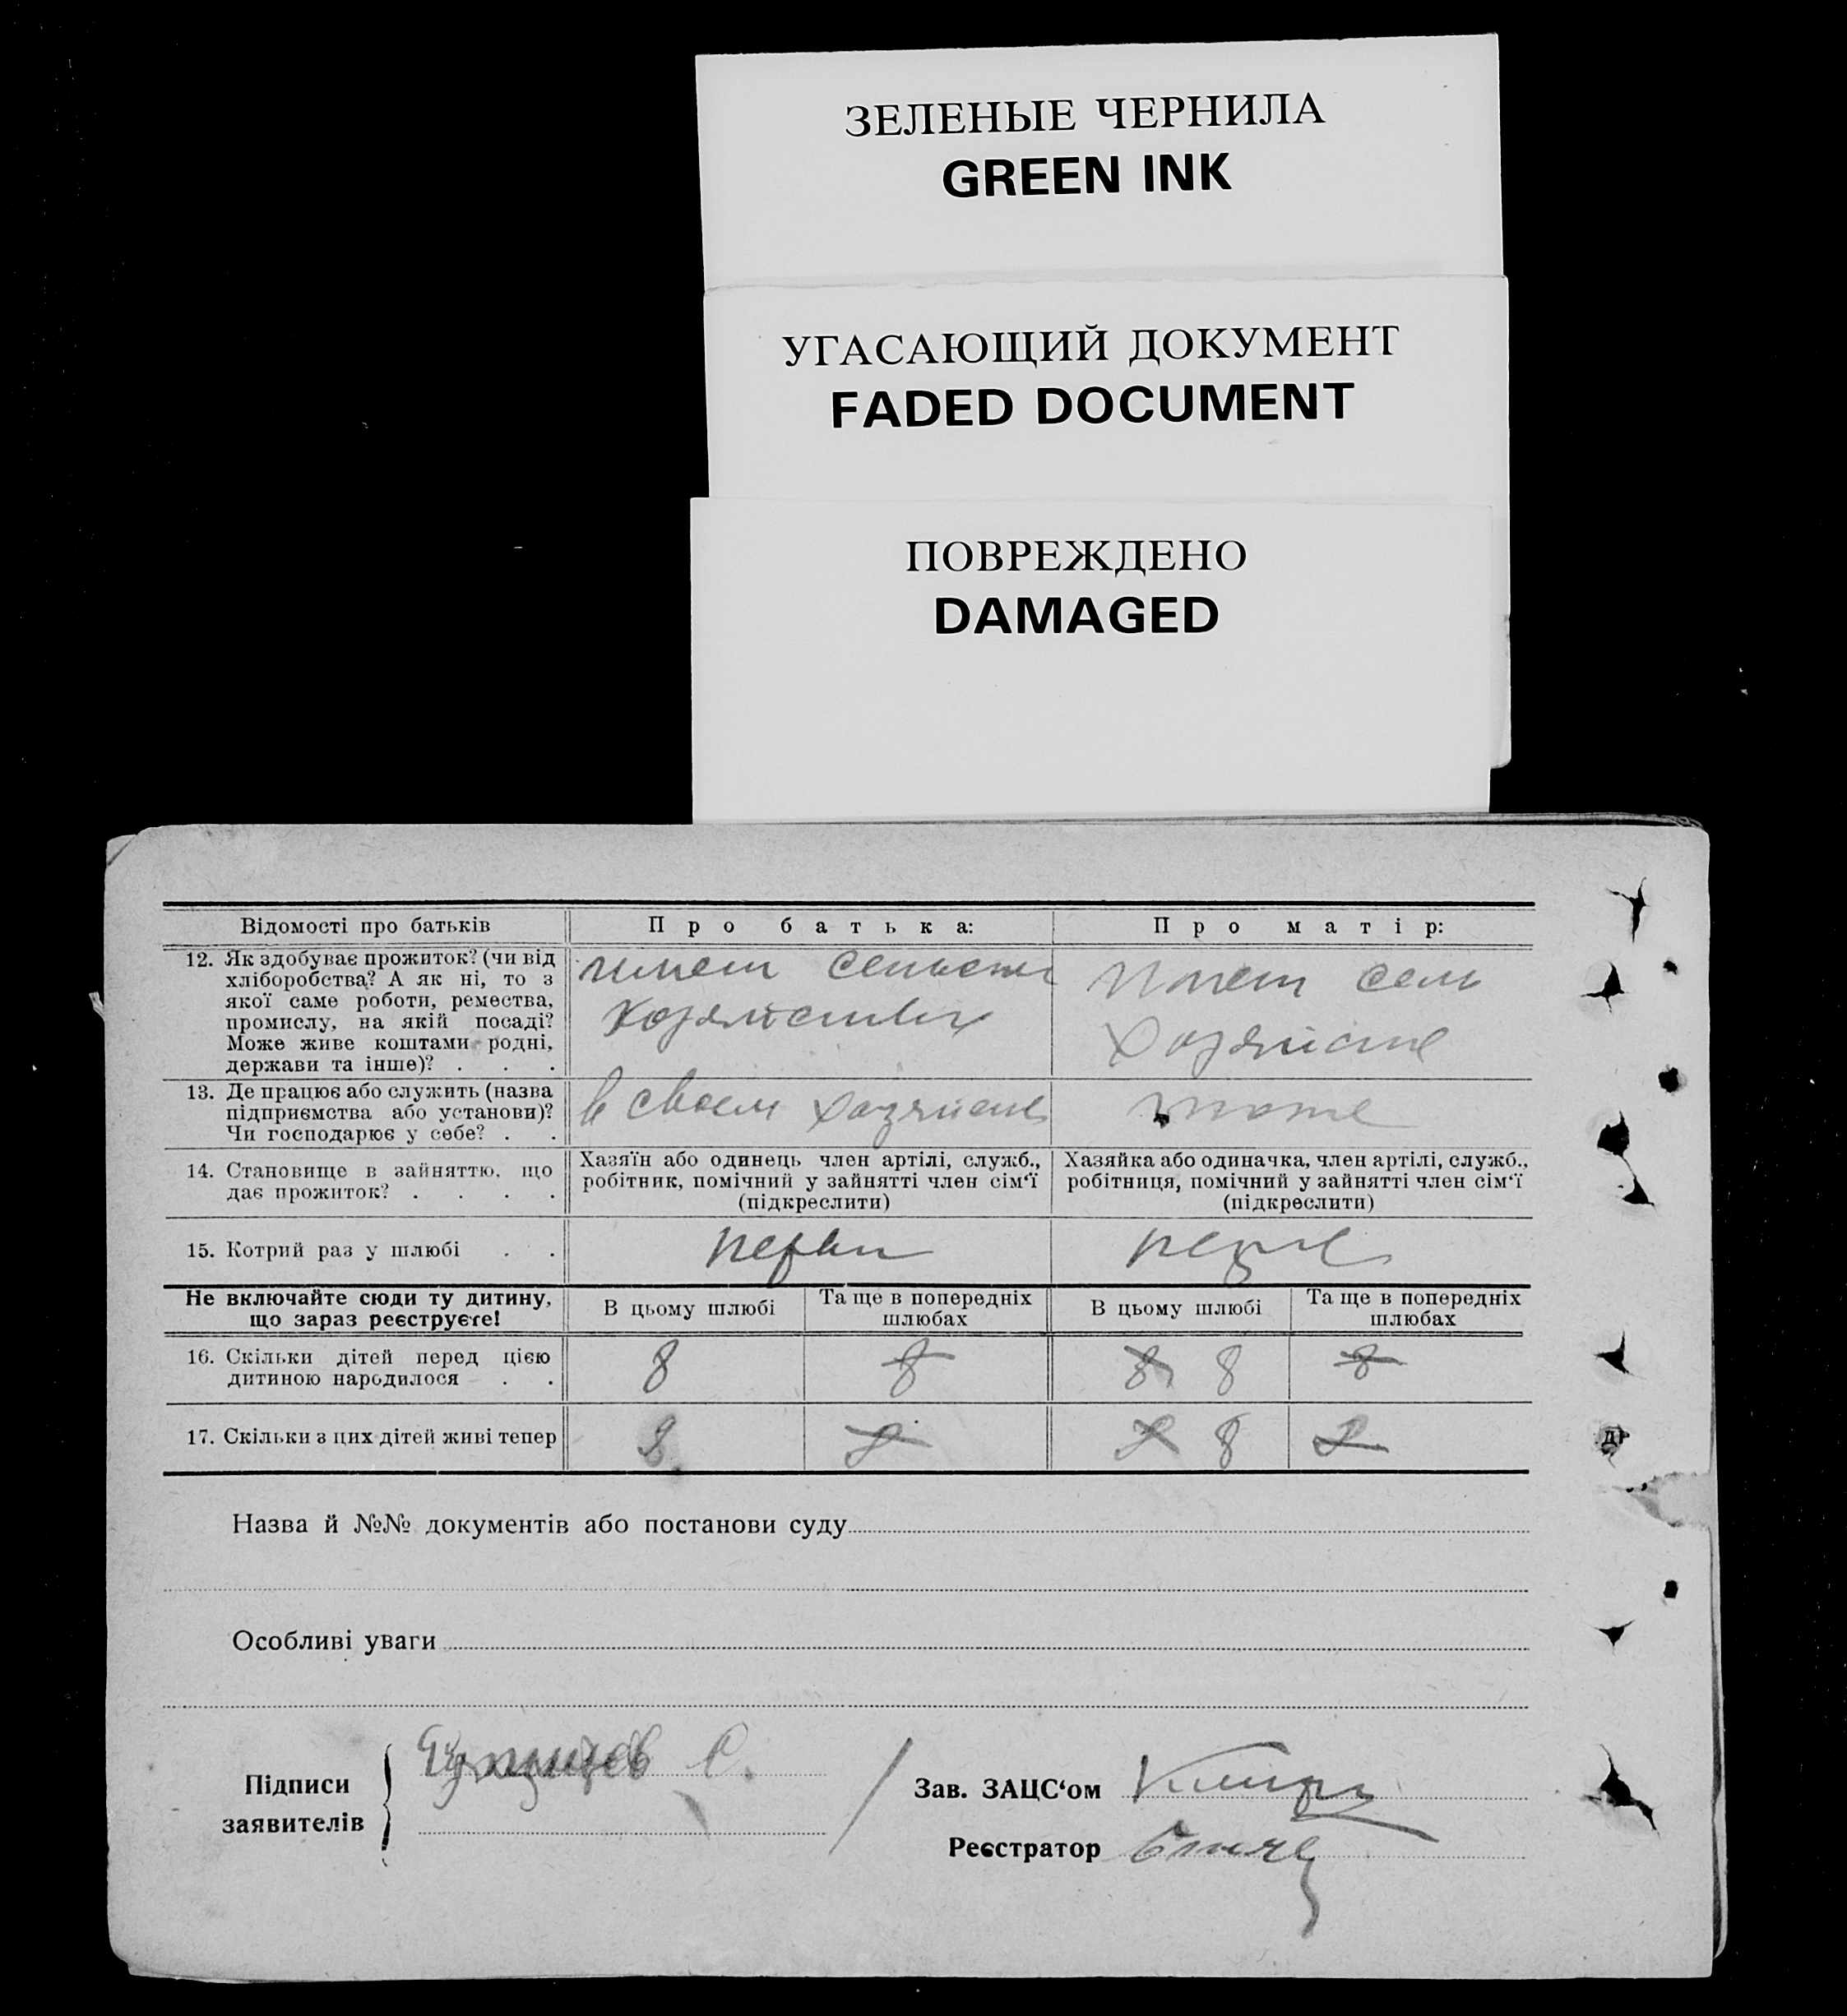 ЗЕЛЕНЫЕ ЧЕРНИЛА
GREEN INK
УГАСАЮЩИЙ ДОКУМЕНТ
FADED DOCUMENT
ПОВРЕЖДЕНО
DAMAGED
Відомості про батьків
Про батька:
Про матір:
12. Як здобуває прожиток? (чи від
хліборобства? А як ні, то з
якої саме роботи, ремества,
промислу, на якій посаді?
Може живе коштами родні,
держави та інше)? . . .
13. Де працює або служить (назва
підприємства або установи)?
Чи господарює у себе? . .
в своем
тоже
14. Становище в зайняттю, що
дає прожиток? . . . .
Хазяїн або одинець член артілі, служб.,
робітник, помічний у зайнятті член сім'ї
(підкреслити)
Хазяйка або одиначка, член артілі, служб.,
робітниця, помічний у зайнятті член сім'ї
(підкреслити)
15. Котрий раз у шлюбі . .
Не включайте сюди ту дитину,
що зараз реєструєте!
В цьому шлюбі
Та ще в попередніх
шлюбах
В цьому шлюбі
Та ще в попередніх
шлюбах
16. Скільки дітей перед цією
дитиною народилося . .
8 8 8 8 8
17. Скільки з цих дітей живі тепер
8 8 8 8 8
Назва й №№ документів або постанови суду
Особливі уваги
Підписи
заявителів
Зав. ЗАЦС'ом
Реєстратор